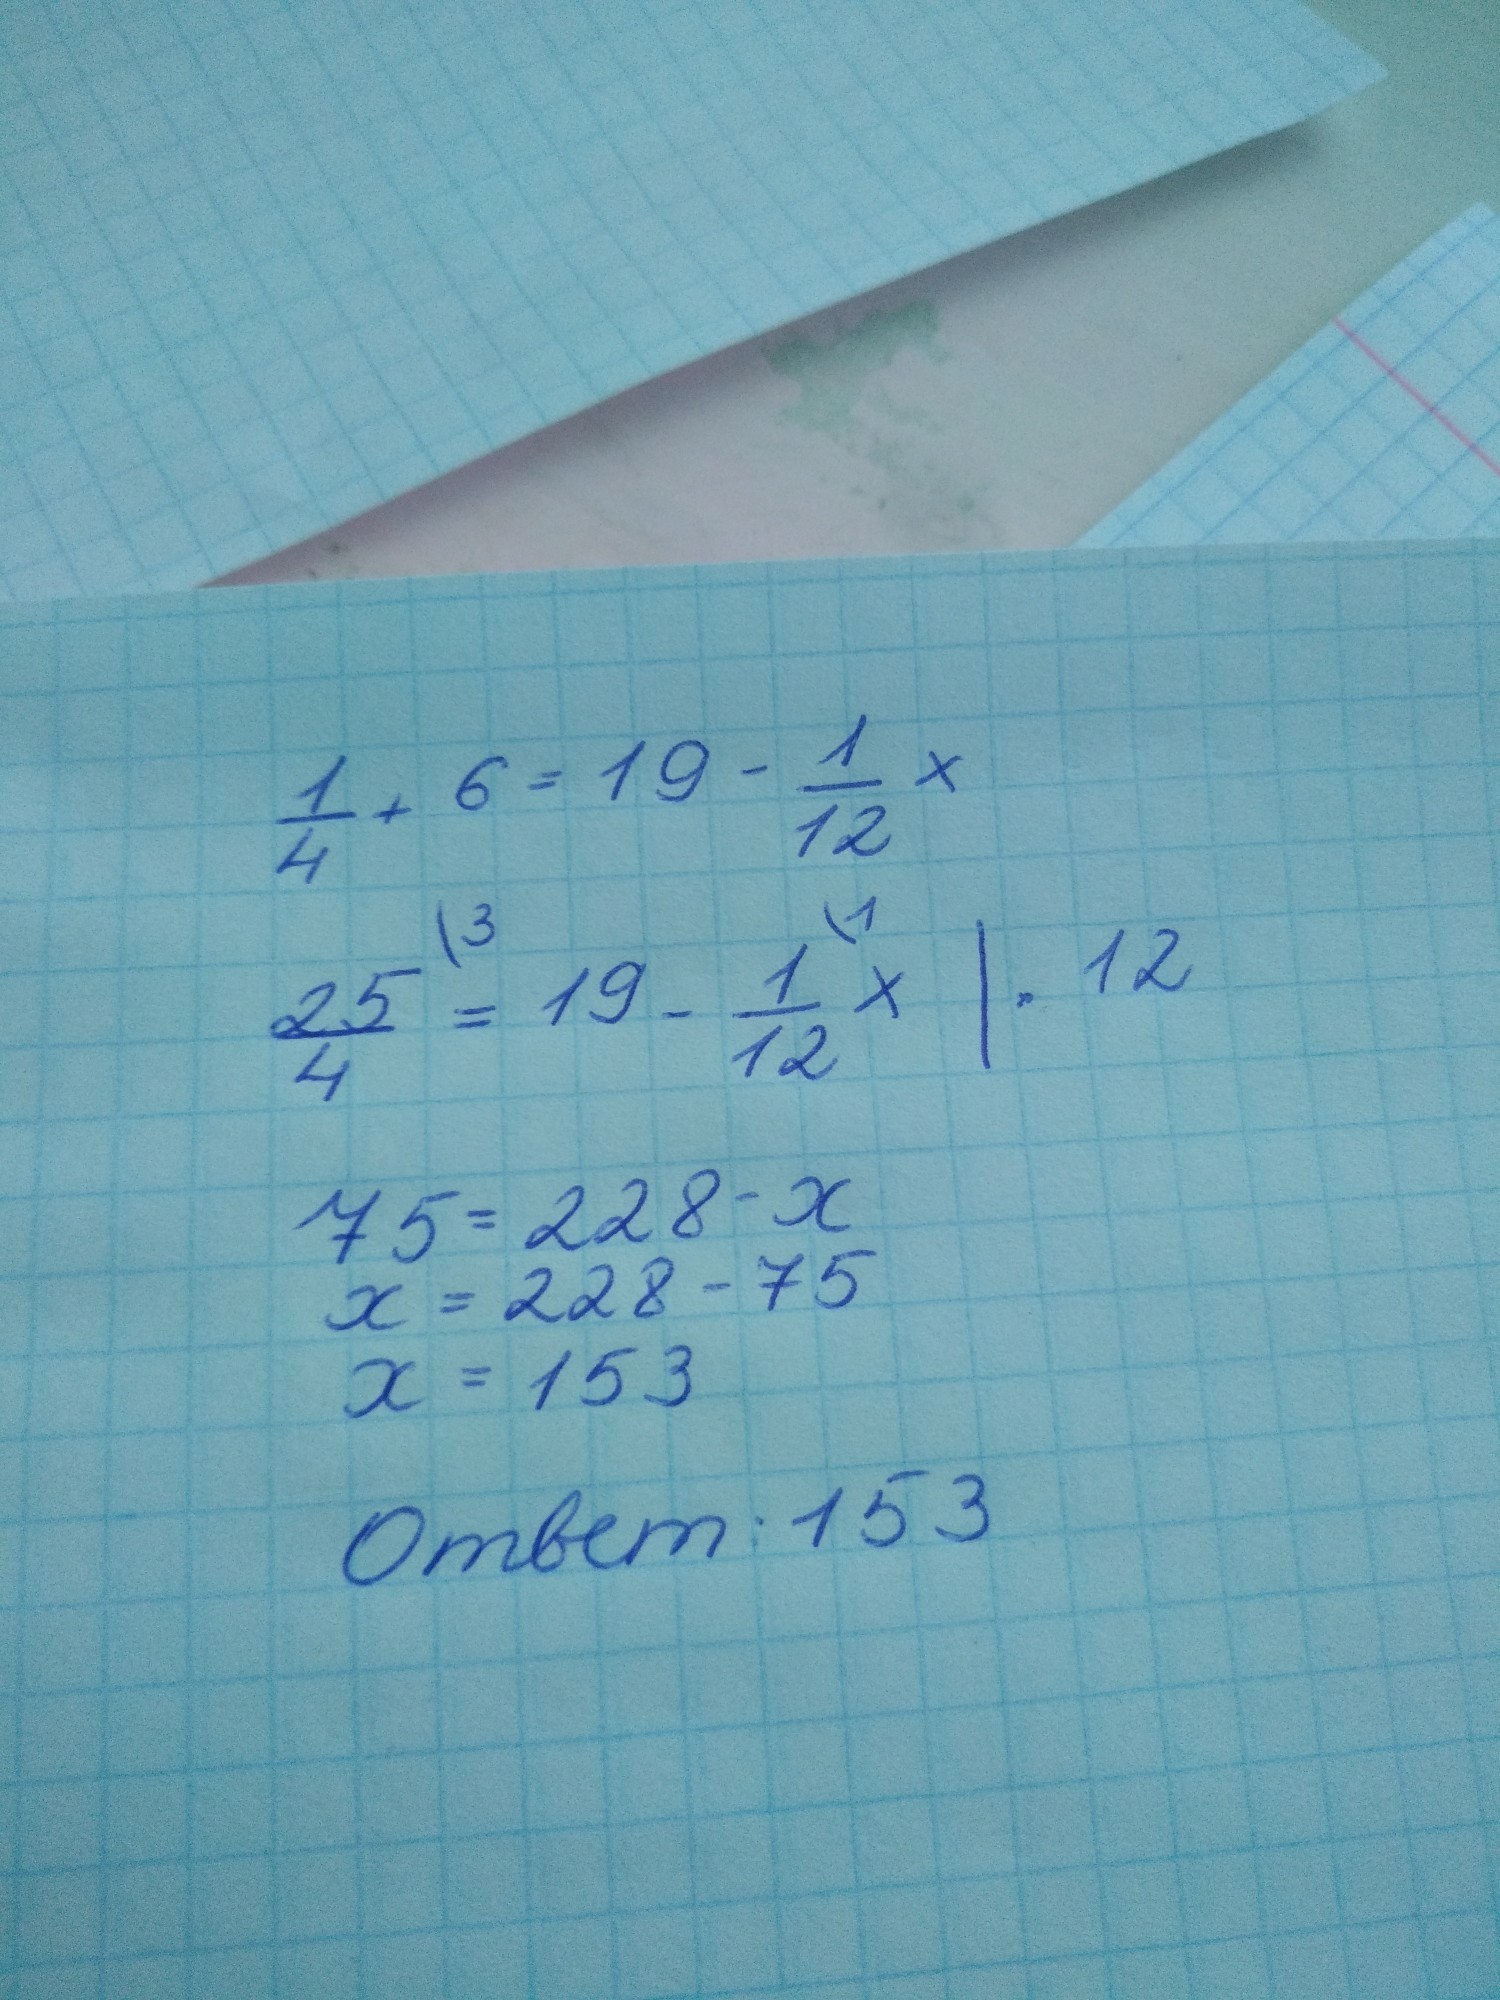 1/4 + 6 = 19 - 1/12 x
25/4 \3 = 19 - 1/12 \1 x | · 12
75 = 228 - x
x = 228 - 75
x = 153
Ответ: 153